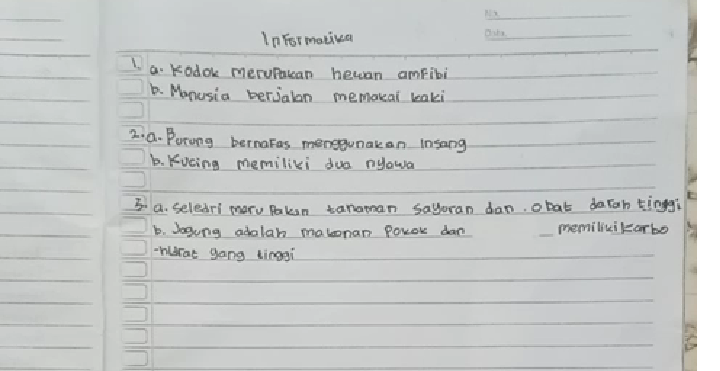 No.
Date
Informatika
1. a. Kodok merupakan hewan amfibi
b. Manusia berjalan memakai kaki
2. a. Burung bernafas menggunakan Insang
b. Kucing memiliki dua nyawa
3. a. Seledri marupakan tanaman sayuran dan. obat darah tinggi
b. Jagung adalah makanan Pokok dan _ memiliki karbo
-hidrat yang tinggi